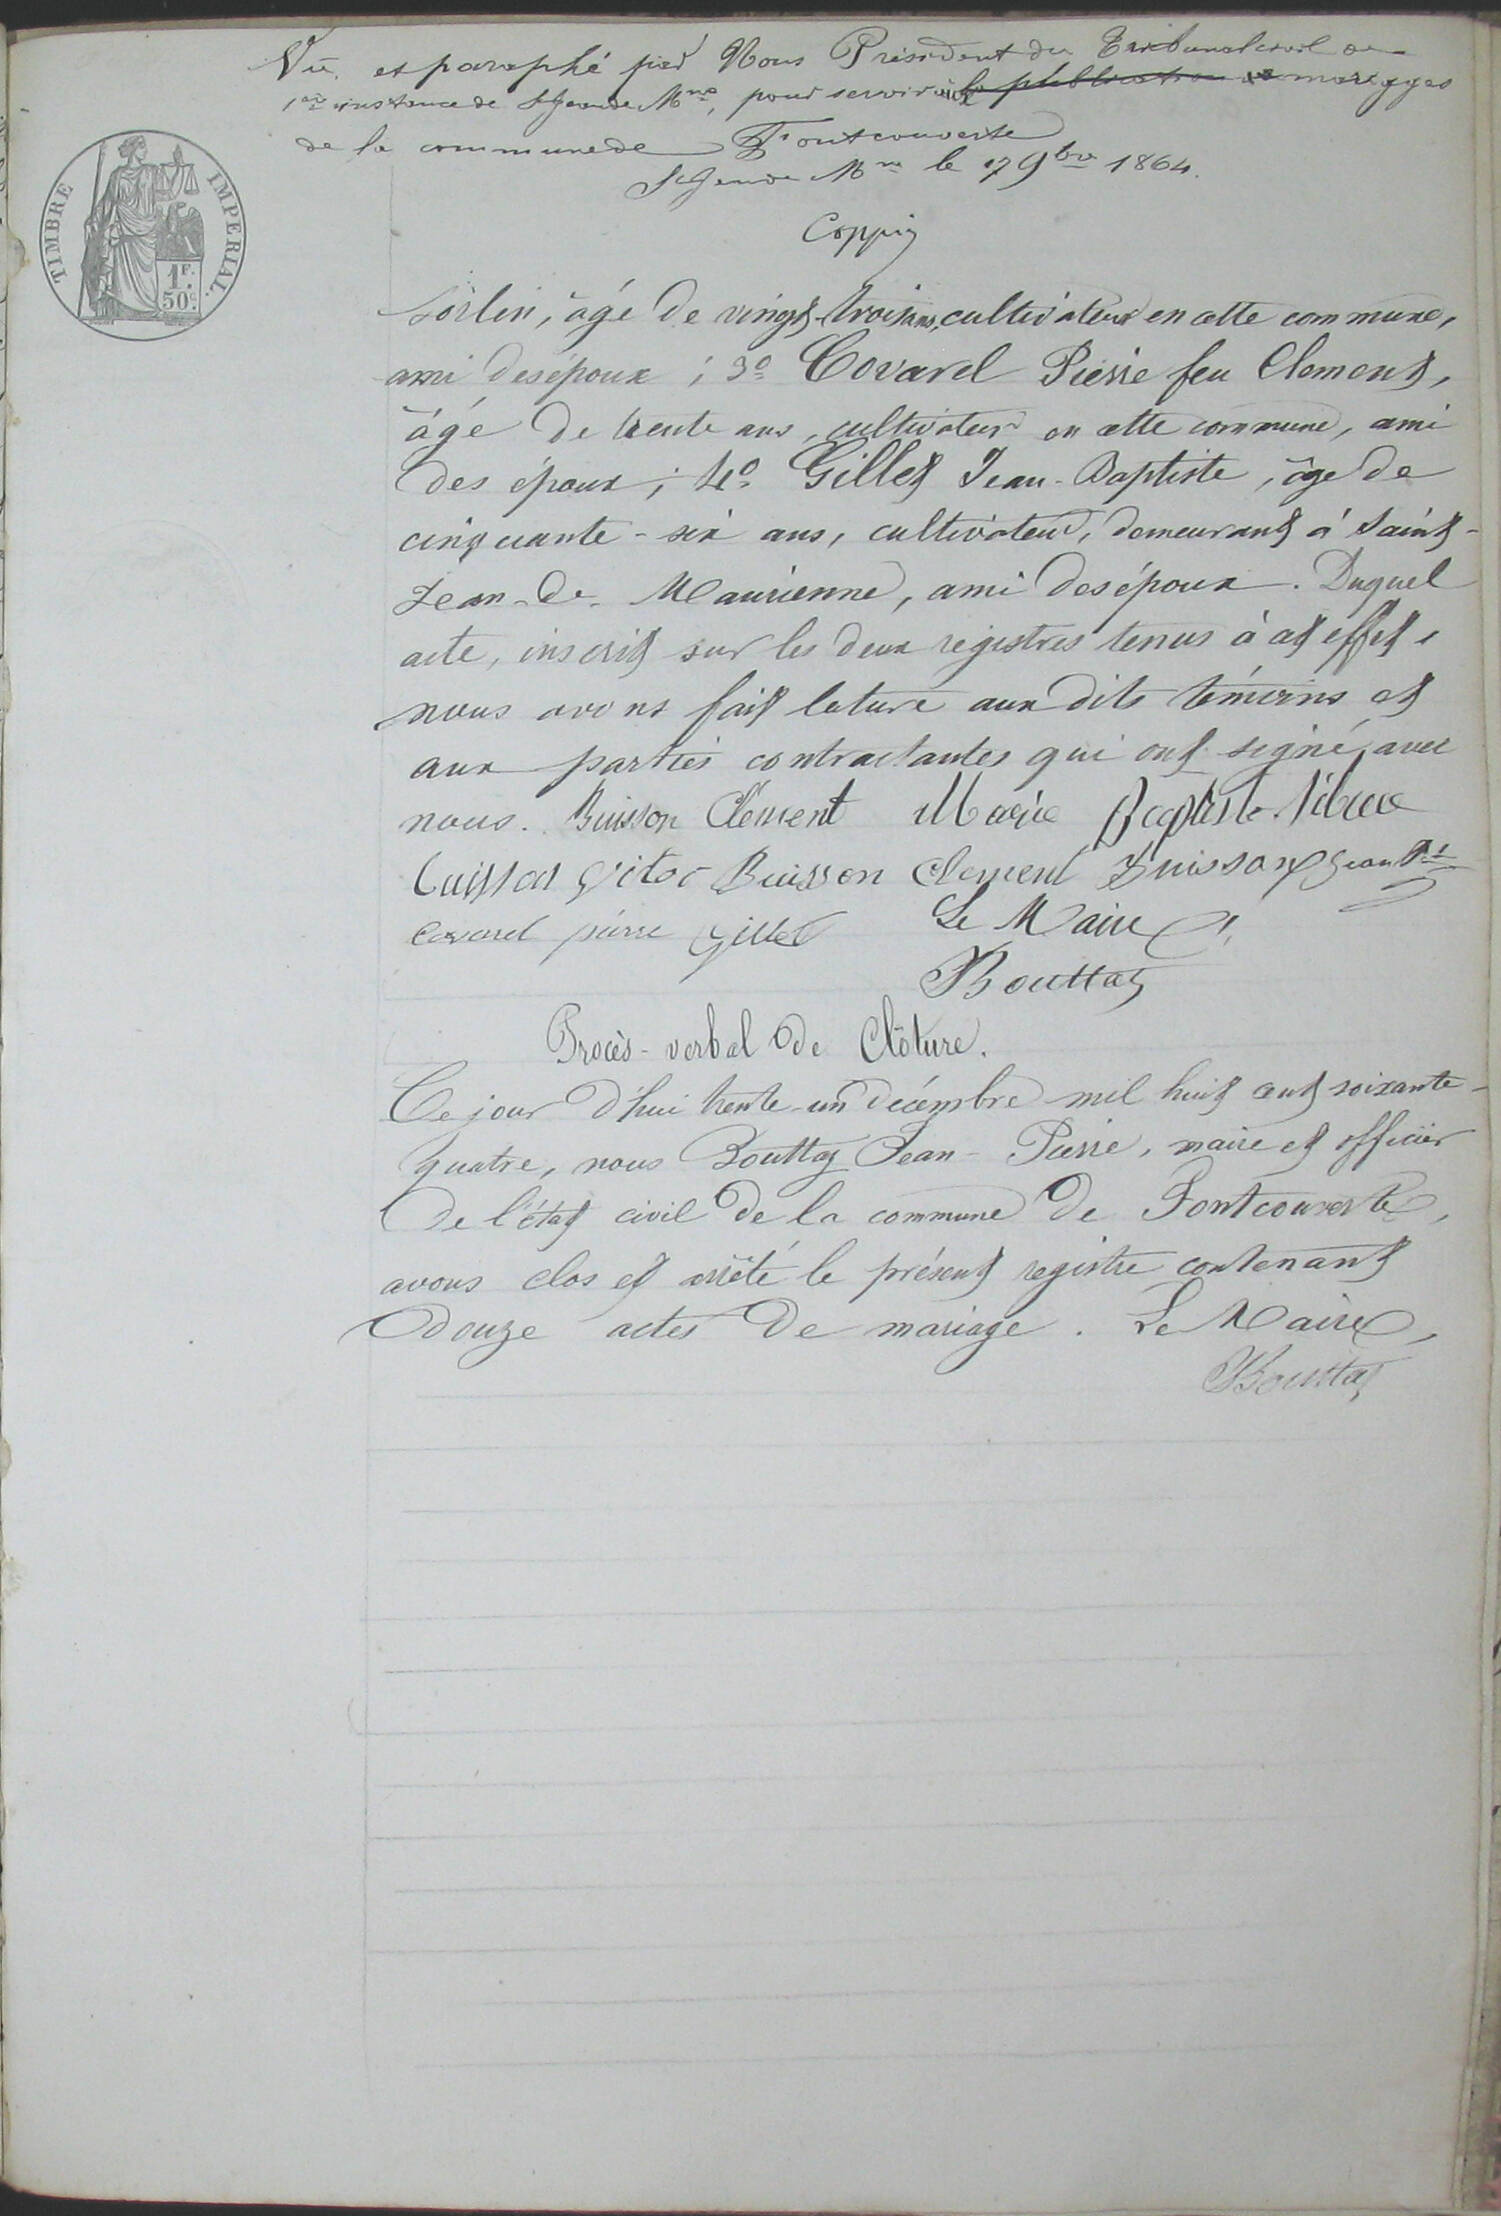 Vu et paraphé par Nous Président du Tribunal civil de
1ère instance de St Jean de Mne, pour servir aux la publication de mariages
de la commune de Fontcouverte
St Jean de Mne le 17 9bre 1864.
Coppin
TIMBRE IMPERIAL.
1F.
50c.
Sorlin, âgé de vingt-trois ans, cultivateur en cette commune,
ami des époux ; 3o Covarel Pierre feu Clément,
âgé de trente ans, cultivateur en cette commune, ami
des époux ; 4o Gillet Jean-Baptiste, âgé de
cinquante-six ans, cultivateur, demeurant à Saint-
Jean-de-Maurienne, ami des époux. Duquel
acte, inscrit sur les deux registres tenus à cet effet,
nous avons fait lecture aux dits témoins et
aux parties contractantes qui ont signé avec
nous. Buisson Clément Marie Baptiste
Buisson Clement Buisson Jean Bte
Covarel pierre Gillet Le Maire,
Bouttaz
Procès-verbal de Clôture.
Ce jour d'hui trente-un décembre mil huit cent soixante-
quatre, nous Bouttaz Jean-Pierre, maire et officier
de l'état civil de la commune de Fontcouverte,
avons clos et arrêté le présent registre contenant
douze actes de mariage. Le Maire,
Bouttaz